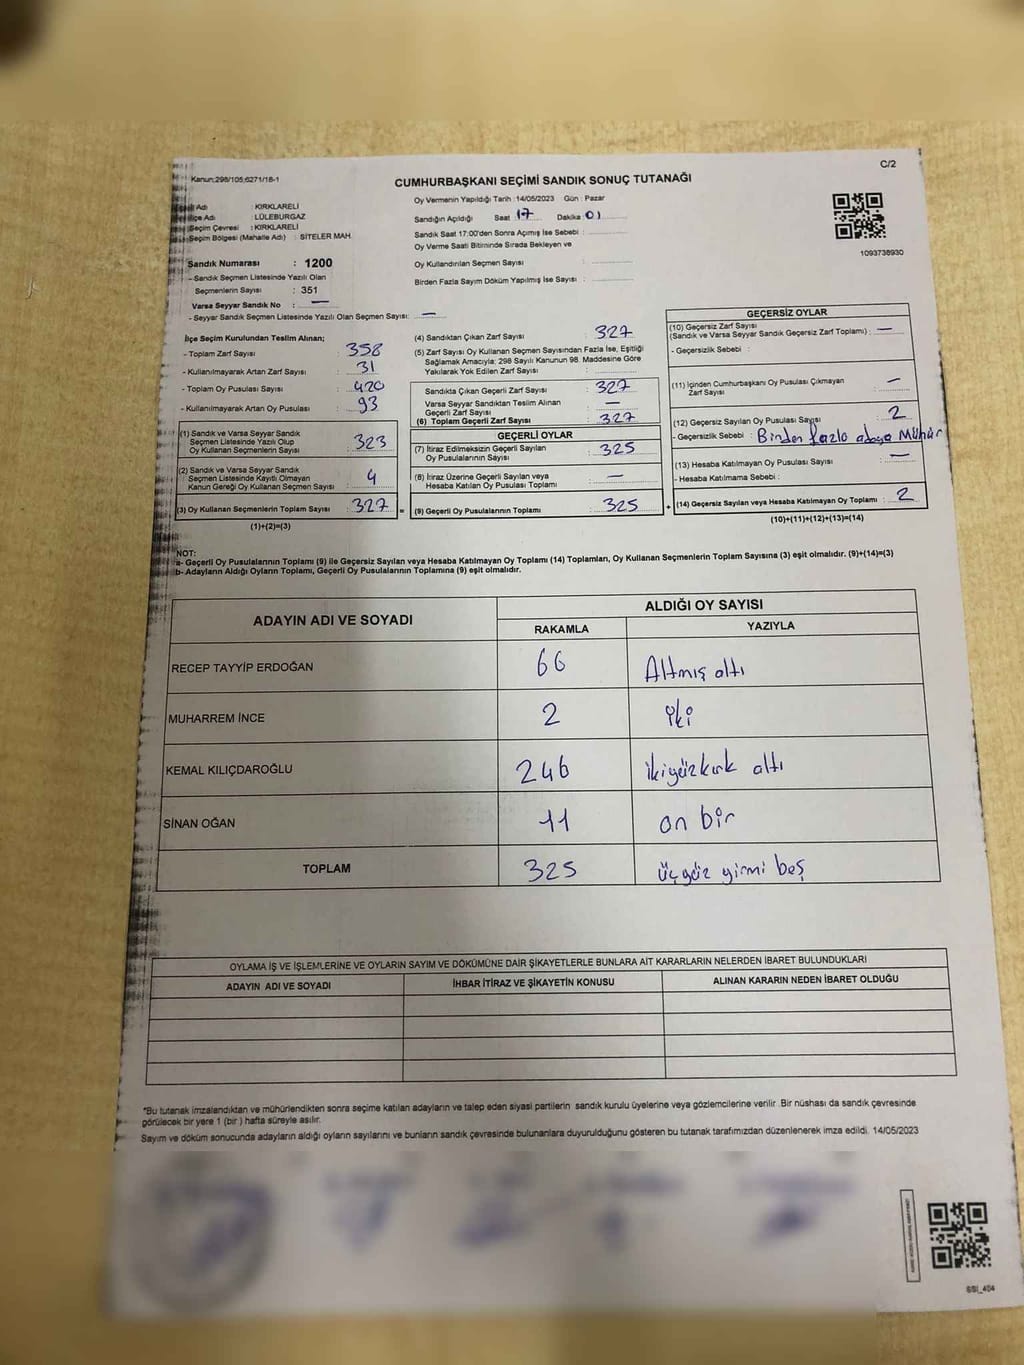 C/2
Kanun:298/105,6271/18-1
CUMHURBAŞKANI SEÇİMİ SANDIK SONUÇ TUTANAĞI
Adı : KIRKLARELİ
İlçe Adı : LÜLEBURGAZ
Seçim Çevresi : KIRKLARELİ
Seçim Bölgesi (Mahalle Adı) : SİTELER MAH.
Sandık Numarası : 1200
- Sandık Seçmen Listesinde Yazılı Olan
Seçmenlerin Sayısı : 351
Varsa Seyyar Sandık No : —
- Seyyar Sandık Seçmen Listesinde Yazılı Olan Seçmen Sayısı: —
Oy Vermenin Yapıldığı Tarih :14/05/2023 Gün : Pazar
Sandığın Açıldığı Saat 17 Dakika 01
Sandık Saat 17:00'den Sonra Açımış İse Sebebi :
Oy Verme Saati Bitiminde Sırada Bekleyen ve
Oy Kullandırılan Seçmen Sayısı :
Birden Fazla Sayım Döküm Yapılmış İse Sayısı :
1093738930
İlçe Seçim Kurulundan Teslim Alınan;
- Toplam Zarf Sayısı : 358
- Kullanılmayarak Artan Zarf Sayısı : 31
- Toplam Oy Pusulası Sayısı : 420
- Kullanılmayarak Artan Oy Pusulası : 93
(1) Sandık ve Varsa Seyyar Sandık
Seçmen Listesinde Yazılı Olup
Oy Kullanan Seçmenlerin Sayısı : 323
(2) Sandık ve Varsa Seyyar Sandık
Seçmen Listesinde Kayıtlı Olmayan
Kanun Gereği Oy Kullanan Seçmen Sayısı : 4
(3) Oy Kullanan Seçmenlerin Toplam Sayısı : 327
(1)+(2)=(3)
(4) Sandıktan Çıkan Zarf Sayısı : 327
(5) Zarf Sayısı Oy Kullanan Seçmen Sayısından Fazla İse, Eşitliği
Sağlamak Amacıyla; 298 Sayılı Kanunun 98. Maddesine Göre
Yakılarak Yok Edilen Zarf Sayısı :
Sandıkta Çıkan Geçerli Zarf Sayısı : 327
Varsa Seyyar Sandıktan Teslim Alınan
Geçerli Zarf Sayısı : —
(6) Toplam Geçerli Zarf Sayısı : 327
GEÇERLİ OYLAR
(7) İtiraz Edilmeksizin Geçerli Sayılan
Oy Pusulalarının Sayısı : 325
(8) İtiraz Üzerine Geçerli Sayılan veya
Hesaba Katılan Oy Pusulası Toplamı : —
= (9) Geçerli Oy Pusulalarının Toplamı : 325
GEÇERSİZ OYLAR
(10) Geçersiz Zarf Sayısı
(Sandık ve Varsa Seyyar Sandık Geçersiz Zarf Toplamı) : —
- Geçersizlik Sebebi :
(11) İçinden Cumhurbaşkanı Oy Pusulası Çıkmayan
Zarf Sayısı : —
(12) Geçersiz Sayılan Oy Pusulası Sayısı : 2
- Geçersizlik Sebebi : Birden fazla adaya Mühür
(13) Hesaba Katılmayan Oy Pusulası Sayısı : —
- Hesaba Katılmama Sebebi :
+ (14) Geçersiz Sayılan veya Hesaba Katılmayan Oy Toplamı : 2
(10)+(11)+(12)+(13)=(14)
NOT:
a- Geçerli Oy Pusulalarının Toplamı (9) ile Geçersiz Sayılan veya Hesaba Katılmayan Oy Toplamı (14) Toplamları, Oy Kullanan Seçmenlerin Toplam Sayısına (3) eşit olmalıdır. (9)+(14)=(3)
b- Adayların Aldığı Oyların Toplamı, Geçerli Oy Pusulalarının Toplamına (9) eşit olmalıdır.
ADAYIN ADI VE SOYADI ALDIĞI OY SAYISI
RAKAMLA YAZIYLA
RECEP TAYYİP ERDOĞAN 66 Altmış altı
MUHARREM İNCE 2 iki
KEMAL KILIÇDAROĞLU 246 ikiyüzkırk altı
SİNAN OĞAN 11 on bir
TOPLAM 325 üçyüz yirmi beş
OYLAMA İŞ VE İŞLEMLERİNE VE OYLARIN SAYIM VE DÖKÜMÜNE DAİR ŞİKAYETLERLE BUNLARA AİT KARARLARIN NELERDEN İBARET BULUNDUKLARI
ADAYIN ADI VE SOYADI İHBAR İTİRAZ VE ŞİKAYETİN KONUSU ALINAN KARARIN NEDEN İBARET OLDUĞU
*Bu tutanak imzalandıktan ve mühürlendikten sonra seçime katılan adayların ve talep eden siyasi partilerin sandık kurulu üyelerine veya gözlemcilerine verilir. Bir nüshası da sandık çevresinde
görülecek bir yere 1 (bir) hafta süreyle asılır.
Sayım ve döküm sonucunda adayların aldığı oyların sayılarını ve bunların sandık çevresinde bulunanlara duyurulduğunu gösteren bu tutanak tarafımızdan düzenlenerek imza edildi. 14/05/2023
SSI_404